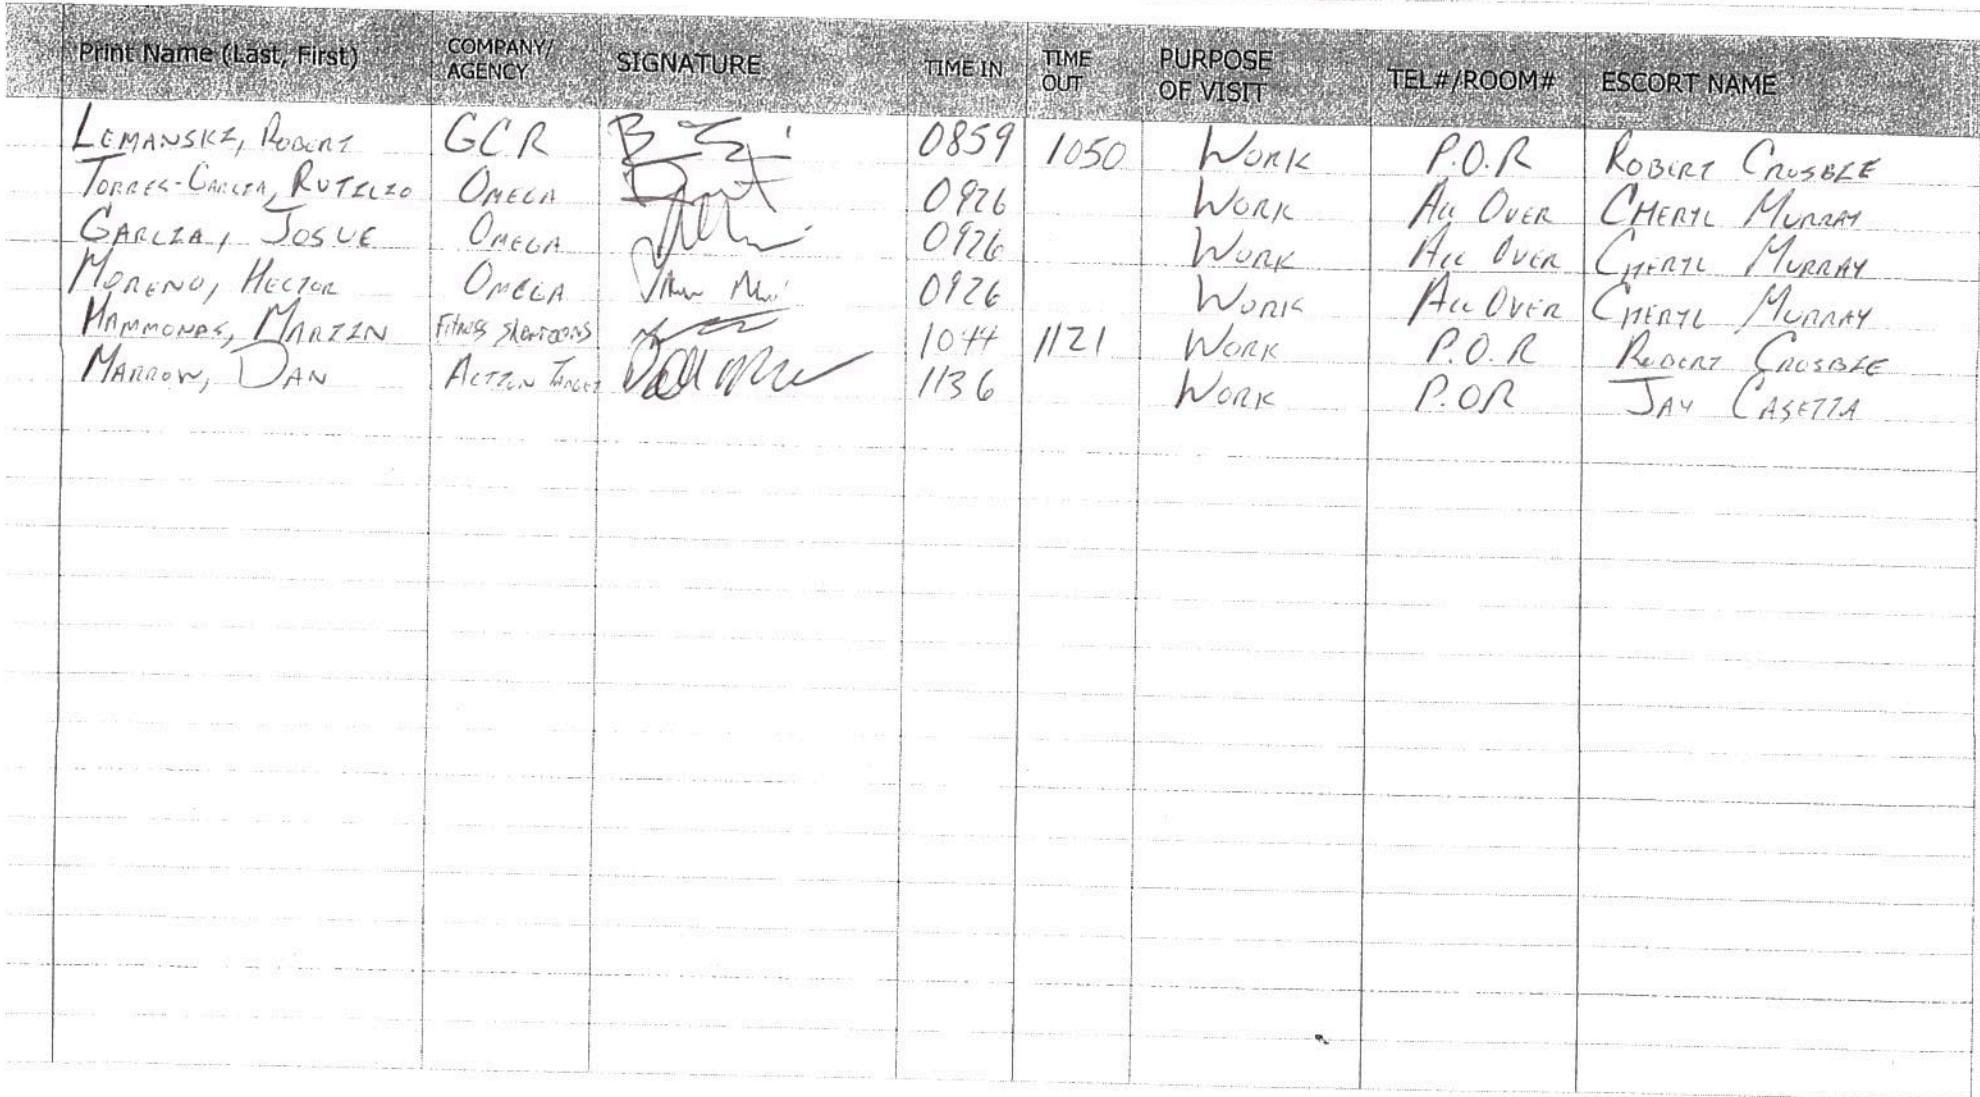 Print Name (Last, First) COMPANY/ AGENCY SIGNATURE TIME IN TIME OUT PURPOSE OF VISIT TEL#/ROOM# ESCORT NAME
LEMANSKI, ROBERT GCR 0859 1050 WORK P.O.R ROBERT CROSBIE
TORRES-GARCIA, RUTILIO OMEGA 0926 WORK ALL OVER CHERYL MURRAY
GARCIA, JOSUE OMEGA 0926 WORK ALL OVER CHERYL MURRAY
MORENO, HECTOR OMEGA 0926 WORK ALL OVER CHERYL MURRAY
HAMMONDS, MARTIN Fitness 1044 1121 WORK P.O.R ROBERT CROSBIE
MARROW, DAN ACTION TARGET 1136 WORK P.OR JAY CASETTA